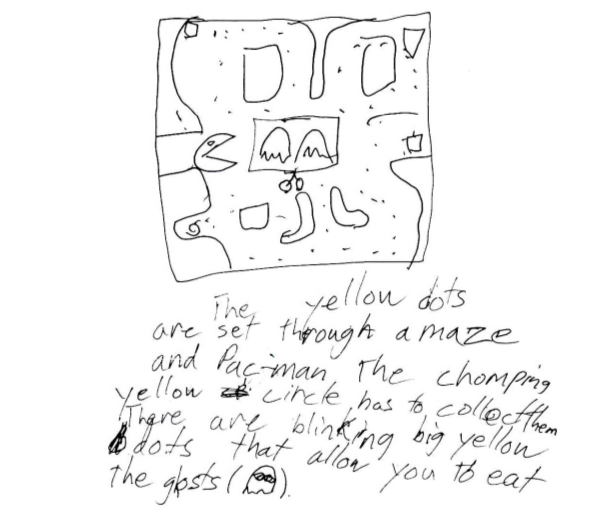 The yellow dots
are set through a maze
and Pac-man the chomping
yellow circle has to collect them
There are blinking big yellow
dots that allow you to eat
the ghosts ( ).